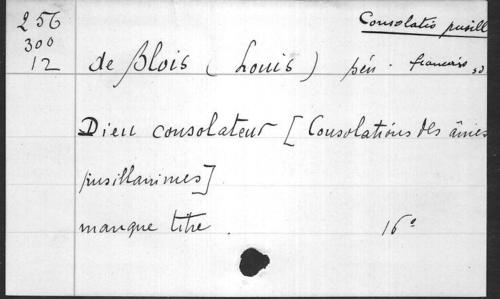 256
300
12
Consolatio pusill
de Blois (Louis) bén. francais
Dieu consolateur [Consolations des âmes
pusillanimes]
manque titre. 16°